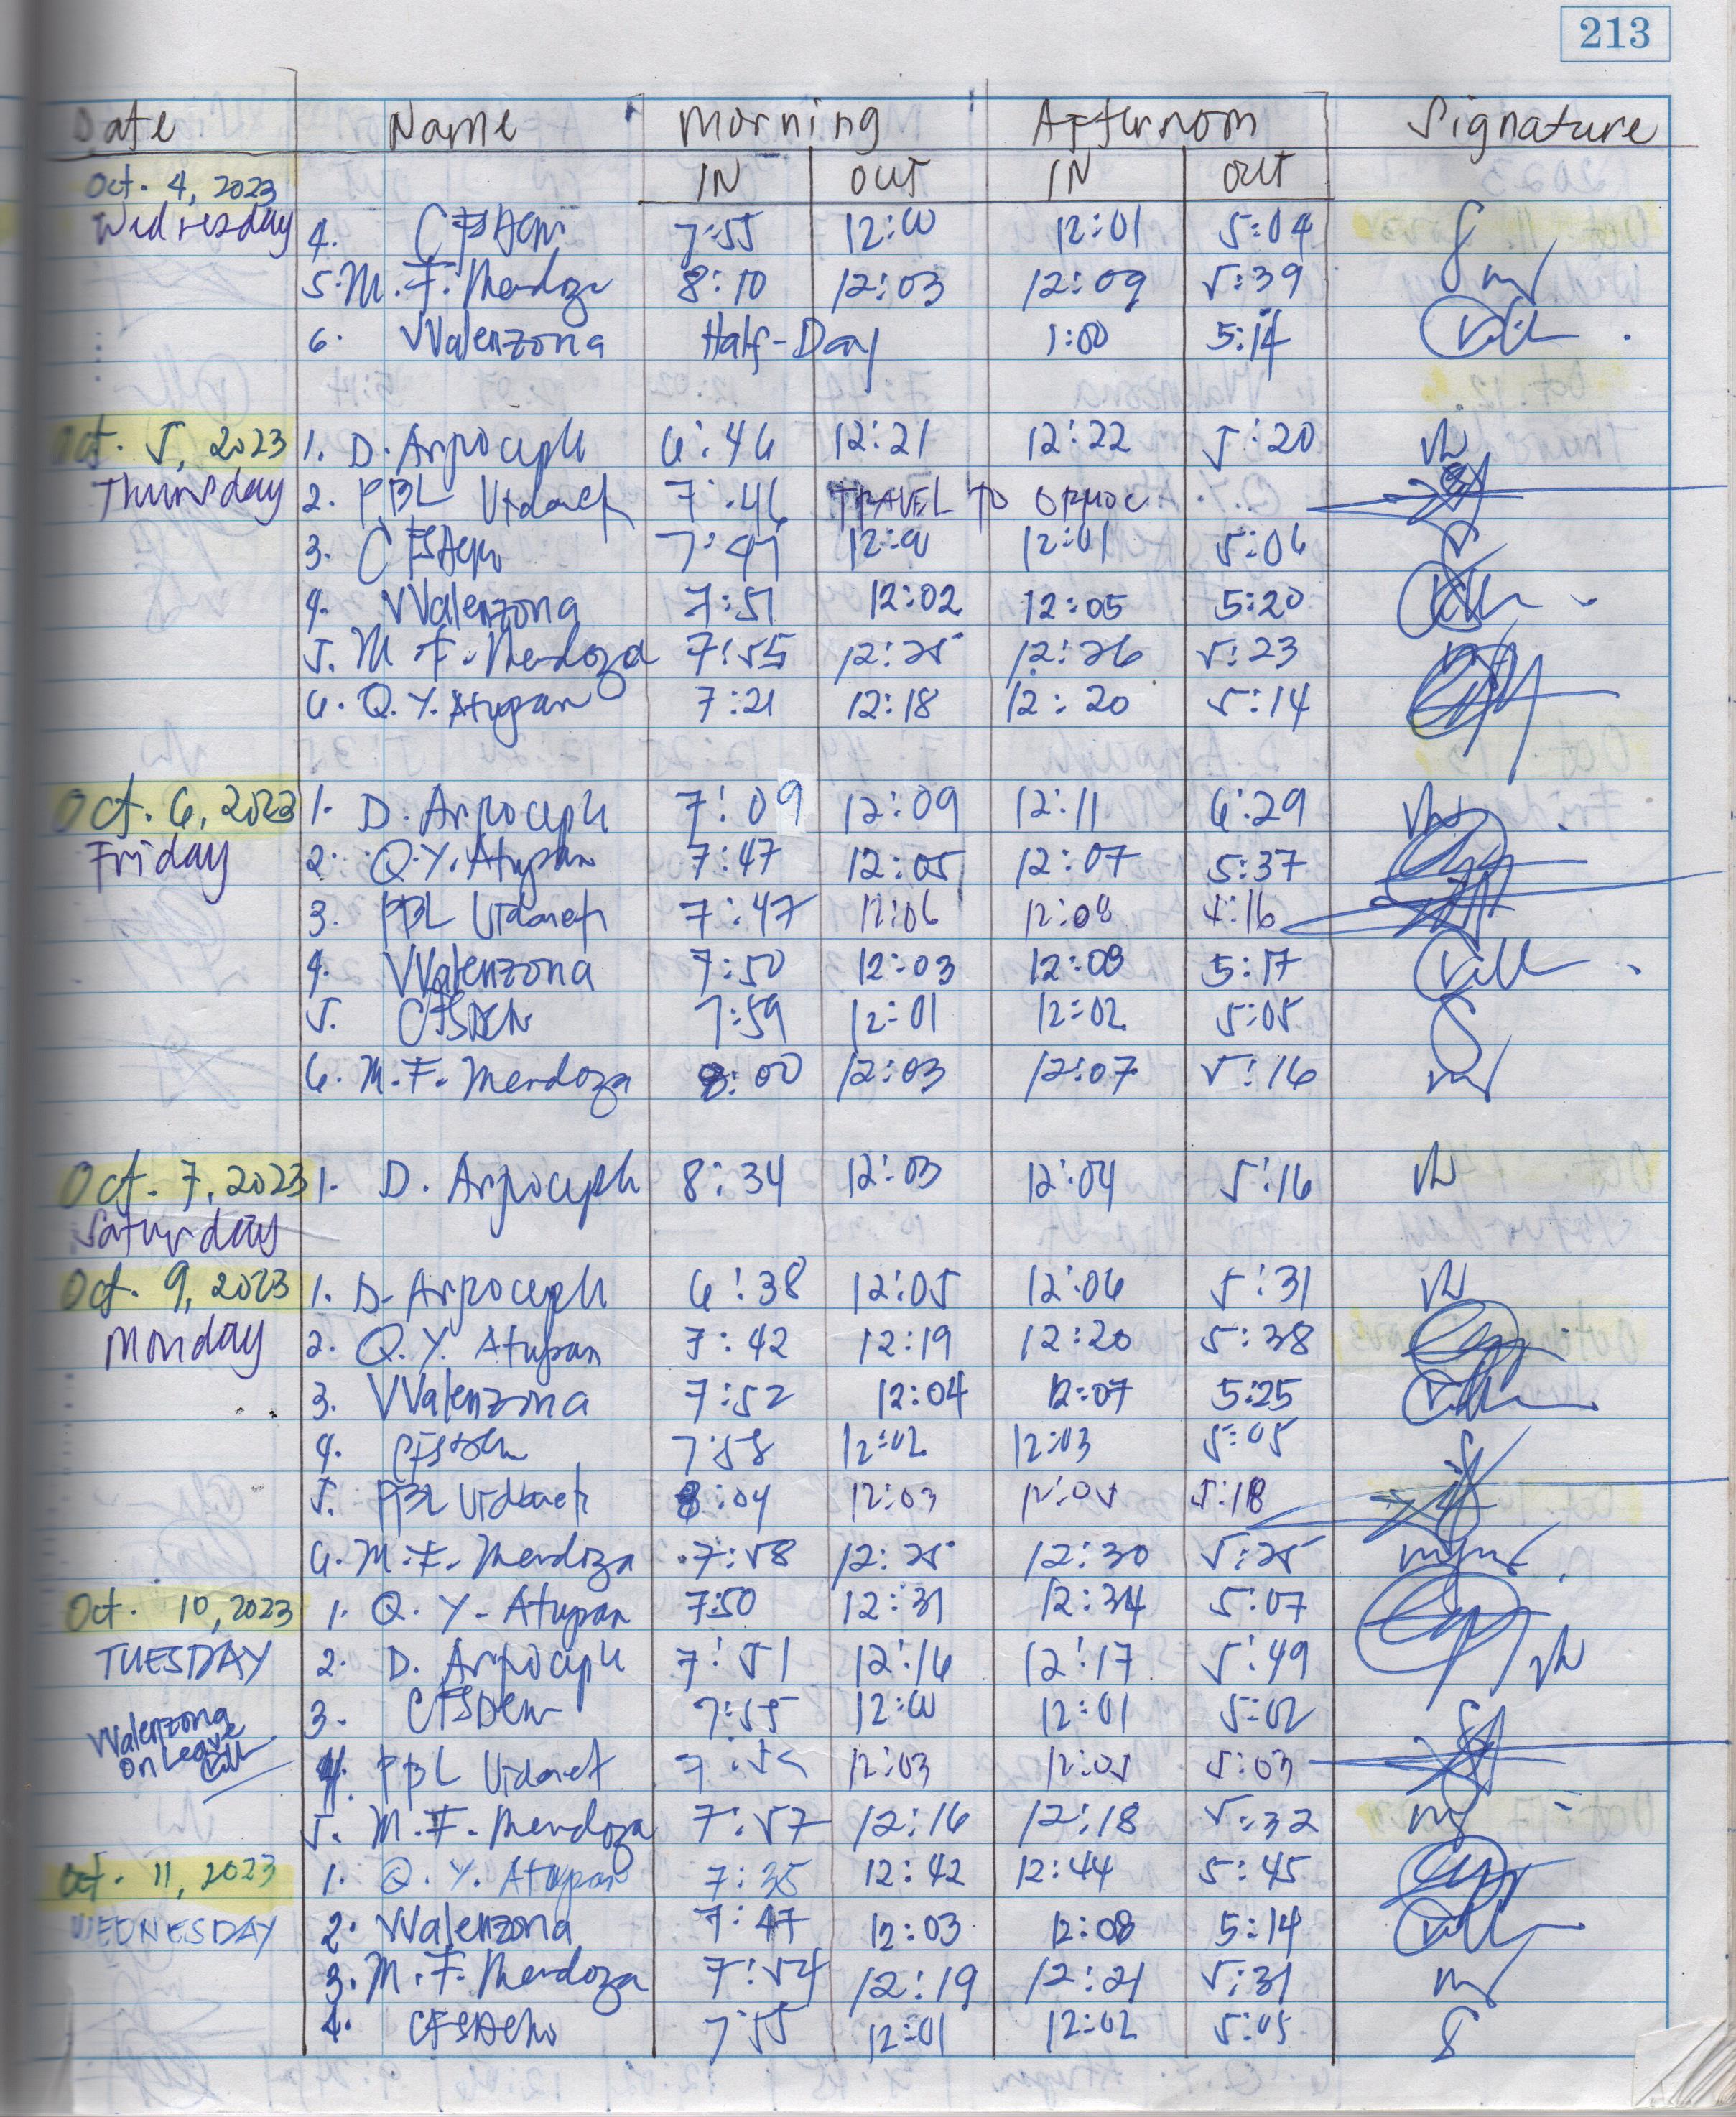 213
Date Name Morning Afternoon Signature
Oct. 4, 2023 IN OUT IN OUT
Wednesday 4. 7:55 12:00 12:01 5:04
5. M. F. Mendoza 8:10 12:03 12:09 5:39
6. VValenzona Half-Day 1:00 5:14
Oct. 5, 2023 1. D. Arpoceph 6:46 12:21 12:22 5:20
Thursday 2. PBL Vidaret 7:46 TRAVEL TO ORMOC
3. 7:47 12:00 12:01 5:06
4. VValenzona 7:51 12:02 12:05 5:20
5. M. F. Mendoza 7:55 12:25 12:26 5:23
6. Q. Y. Atupan 7:21 12:18 12:20 5:14
Oct. 6, 2023 1. D. Arpoceph 7:09 12:09 12:11 6:29
Friday 2. Q. Y. Atupan 7:47 12:05 12:07 5:37
3. PBL Vidaret 7:47 12:06 12:08 4:16
4. VValenzona 7:50 12:03 12:08 5:17
5. 7:59 12:01 12:02 5:05
6. M. F. Mendoza 8:00 12:03 12:07 5:16
Oct. 7, 2023 1. D. Arpoceph 8:34 12:03 12:04 5:16
Saturday
Oct. 9, 2023 1. D. Arpoceph 6:38 12:05 12:06 5:31
Monday 2. Q. Y. Atupan 7:42 12:19 12:20 5:38
3. VValenzona 7:52 12:04 12:07 5:25
4. 7:58 12:02 12:03 5:05
5. PBL Vidaret 8:04 12:03 12:05 5:18
6. M. F. Mendoza 7:58 12:25 12:30 5:25
Oct. 10, 2023 1. Q. Y. Atupan 7:50 12:31 12:34 5:07
TUESDAY 2. D. Arpoceph 7:51 12:16 12:17 5:49
3. 7:55 12:00 12:01 5:02
VValenzona
On Leave
4. PBL Vidaret 12:03 12:05 5:03
5. M. F. Mendoza 7:57 12:16 12:18 5:32
Oct. 11, 2023 1. Q. Y. Atupan 7:35 12:42 12:44 5:45
WEDNESDAY 2. VValenzona 7:47 12:03 12:08 5:14
3. M. F. Mendoza 7:54 12:19 12:21 5:31
4. 7:55 12:01 12:02 5:05